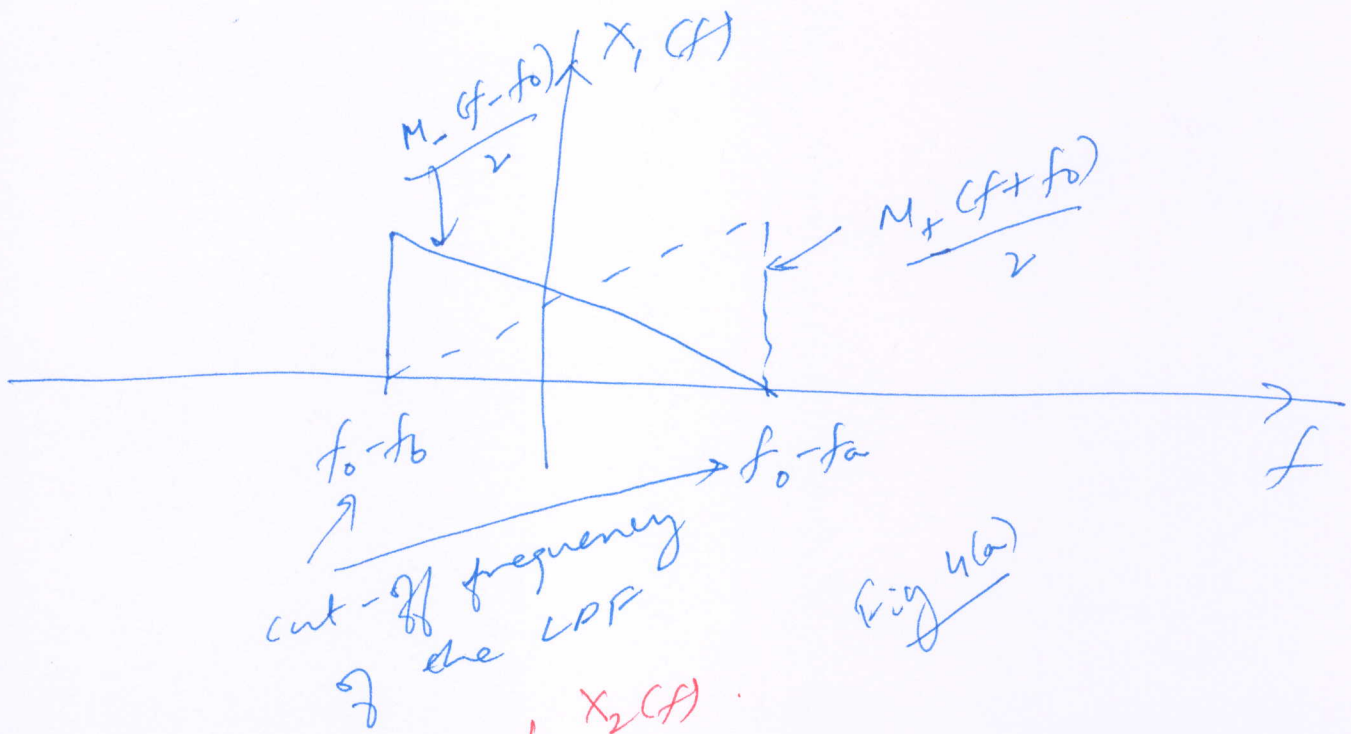 X₁ (f)
M₋ (f-f0)
2
M₊ (f+f0)
2
f₀-fb
f₀-fa
f
cut-off frequency
of the LPF
Fig 4(a)
X₂(f)